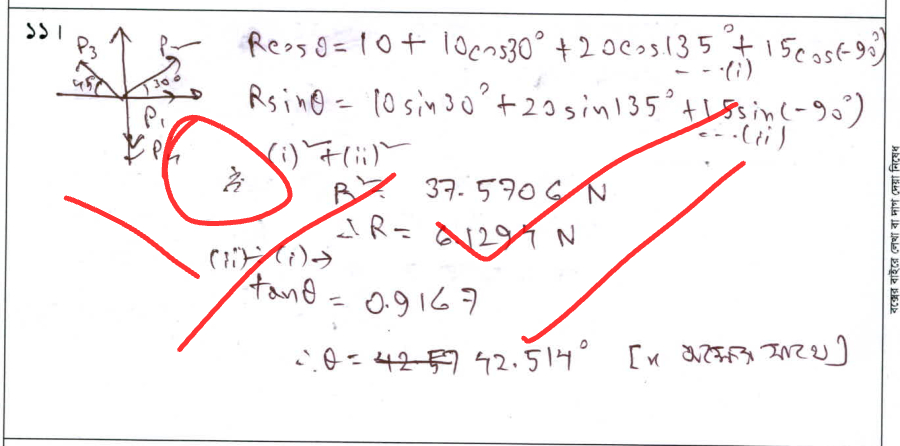 ১১।
P₃ P₂
45° 30°
P₁
P₄
Rcosθ = 10 + 10cos30° + 20cos135° + 15cos(-90°)
---(i)
Rsinθ = 10sin30° + 20sin135° + 15sin(-90°)
---(ii)
(i)² + (ii)²
R² = 37.5706 N
∴ R = 6.1294 N
(ii) ÷ (i) →
tanθ = 0.9167
∴ θ = 42.57 42.514° [x অক্ষের সাথে]
বক্সের বাইরে লেখা বা দাগ দেয়া নিষেধ